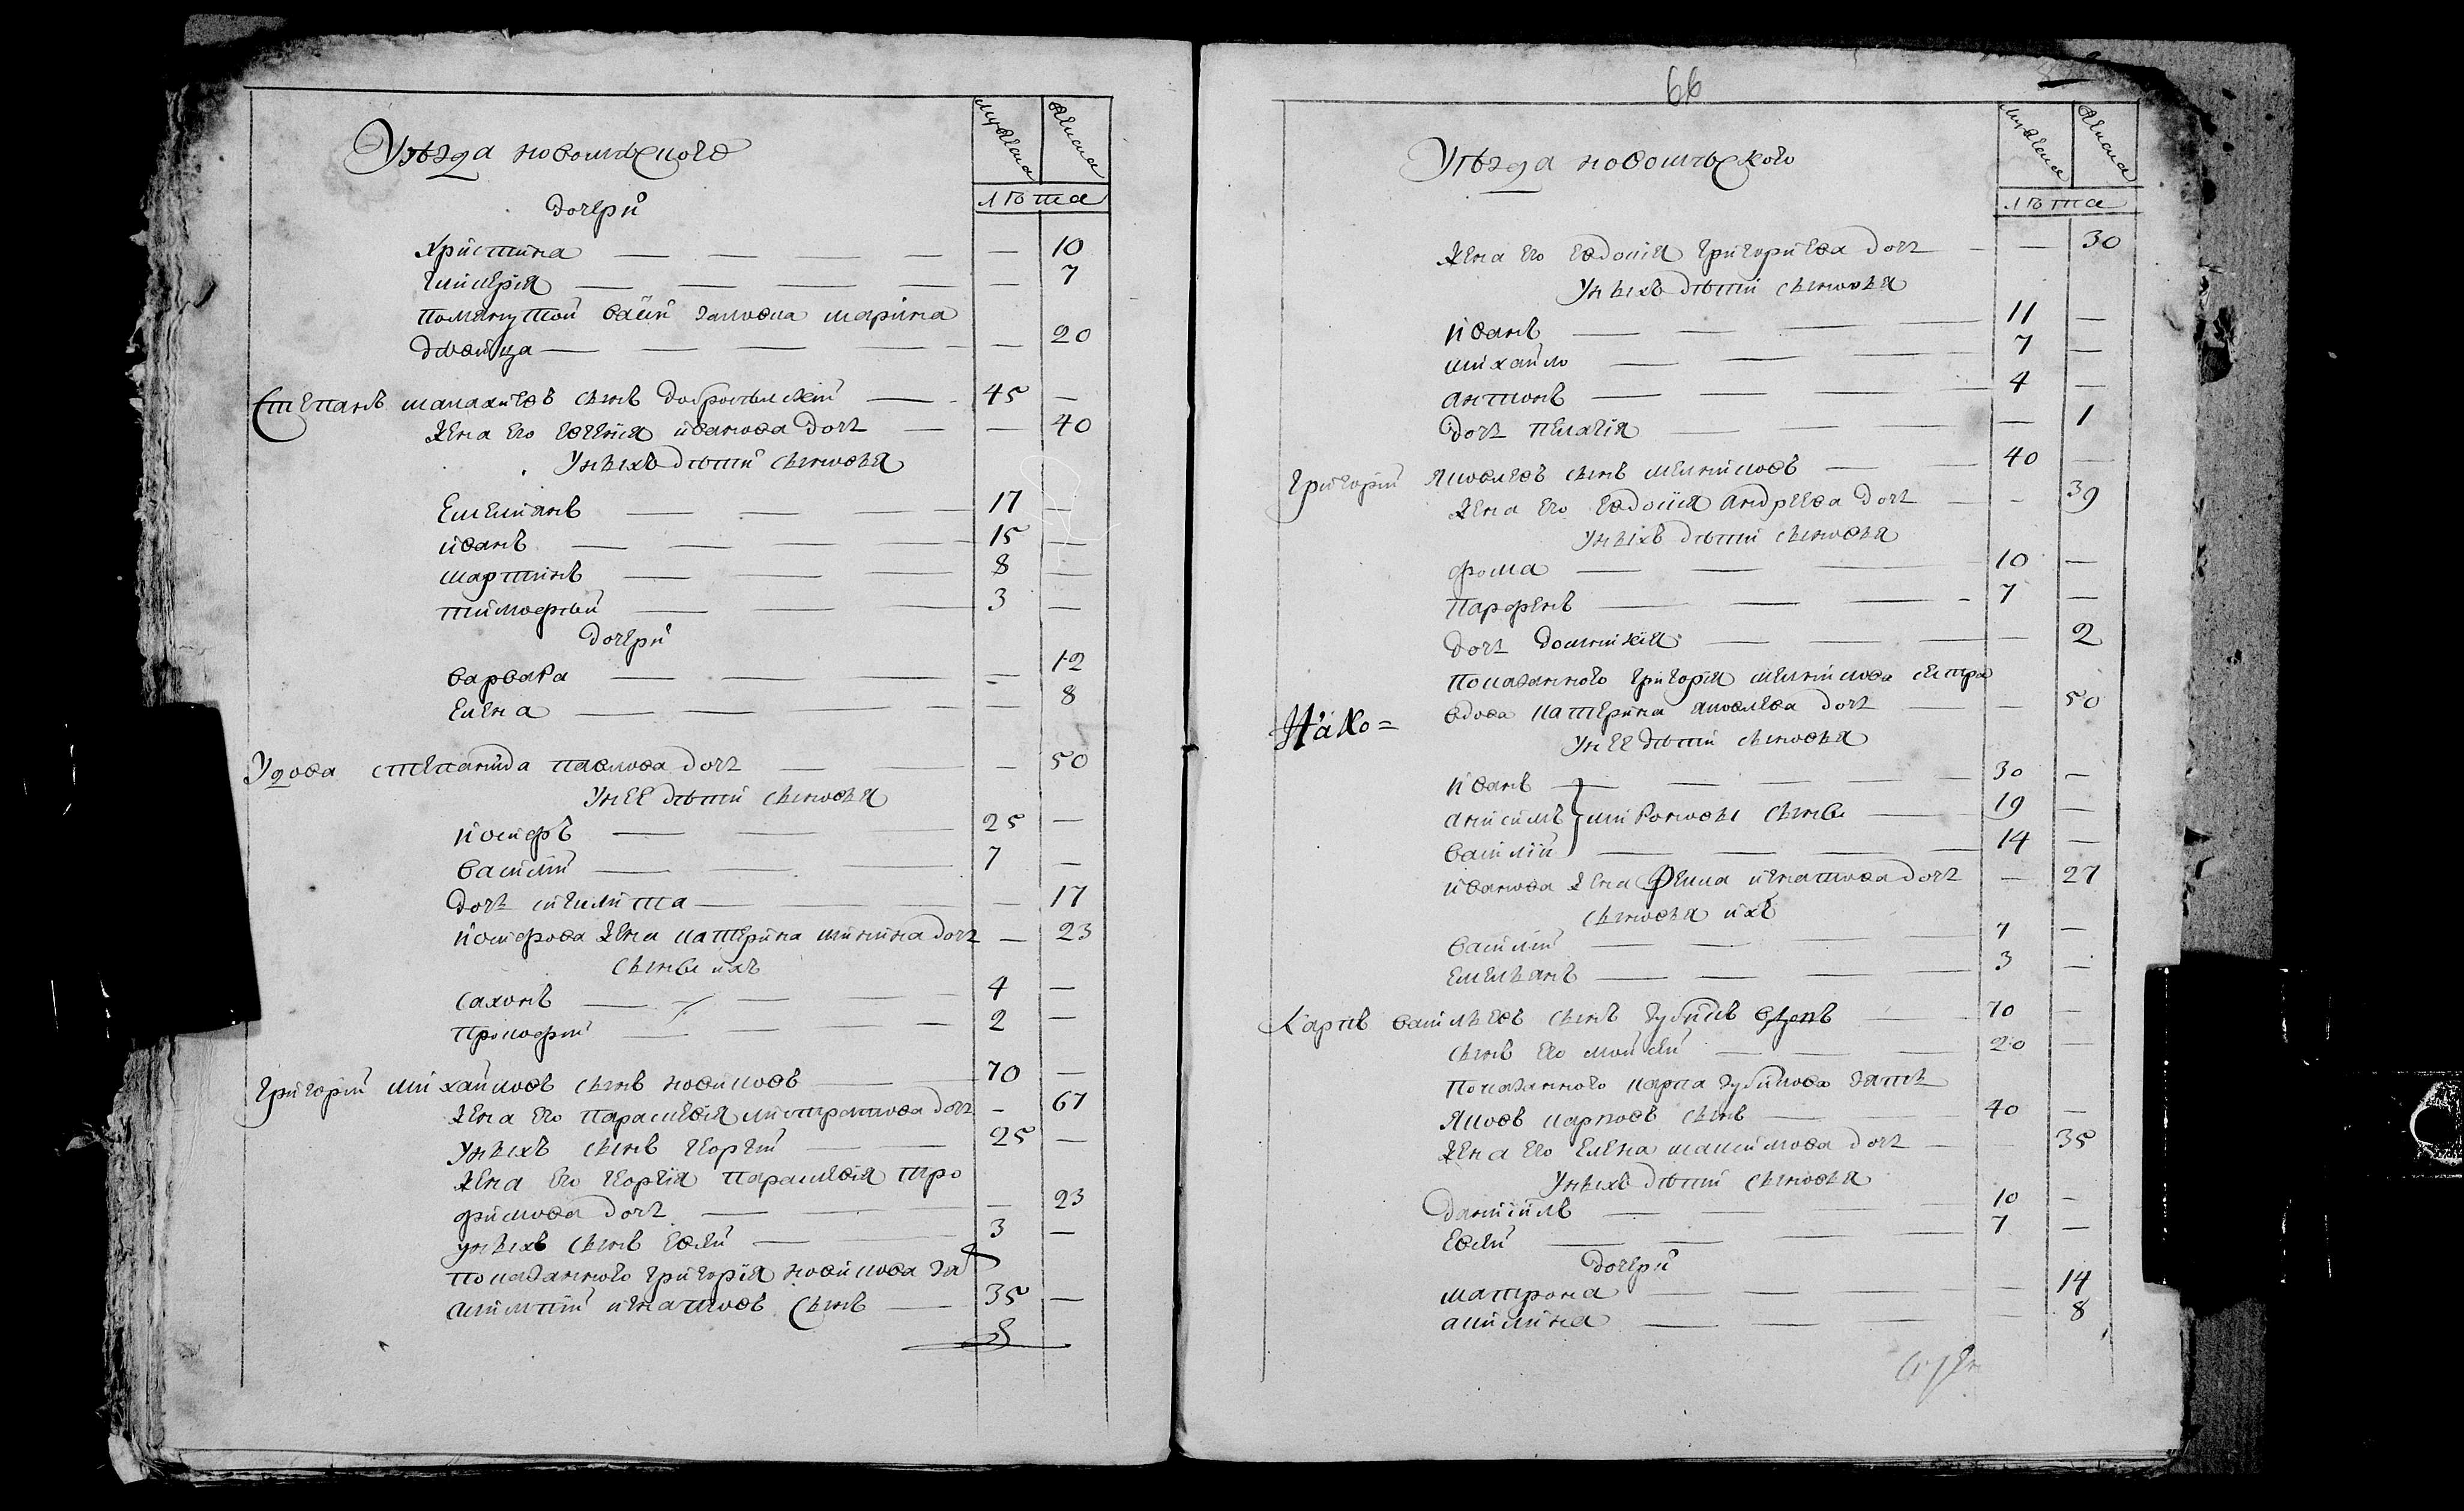 Уѣзда новомѣского
Мужеска
Женска
лѣта
дочери
Христина — — — — — 10
Гликерія — — — — — 7
помянутой золовка марина
дѣвица — — — — — 20
Степанъ малахиевъ сынъ добросѣлскій — 45 —
жена его евгения иванова дочь — — 40
у ныхъ дѣти сыновья
Емелиянъ — — — 17 —
иванъ — — — — 15 —
мартинъ — — — 8 —
тимофѣи — — — 3 —
дочери
варвара — — — — 12
Елена — — — — — 8
Удова степанида павлова дочь — — — 50
у нее дѣти сыновья
иосифъ — — — 25 —
василий — — 7 —
дочь — — — — 17
иосифова жена катерина минина дочь — 23
сынве ихъ
сахонъ — — — — 4 —
прокофий — — — — 2 —
Григорий михайловъ сынъ новиковъ — — 70 —
жена его параскѣвія дочь — 67
у ныхъ сынъ георгий — — 25 —
жена его георгія параскевія тро
фимова дочь — — — — 23
у ныхъ сынъ евсѣй — — 3 —
показанного григорія новикова зя
игнатовъ сынъ — 35 —
66
Уѣзда новомѣского
Мужеска
Женска
лѣта
жена его евдокия григориева дочь — — 30
у ныхъ дѣти сыновья
иванъ — — — 11 —
михайло — — — 7 —
антонъ — — — 4 —
дочь пелагія — — — — 1
Григорий яковлевъ сынъ мелниковъ — — 40 —
жена его евдокия андреева дочь — — 39
у ныхъ дѣти сыновья
фома — — — 10 —
парфенъ — — — — 7 —
дочь домникія — — — — 2
показанного григорія мелникова сестра
вдова катерина яковлева дочь — — 50
Нако=
у нее дѣти сыновья
иванъ — — — — 30 —
анисимъ } мироновы сынве — — 19 —
василий — — — — 14 —
иванова жена фекла игнатова дочь — 27
сыновья ихъ
василий — — — — 7 —
емельянъ — — — — 3 —
Карпъ васильевъ сынъ зубковъ — 70 —
сынъ его моисѣй — — — 20 —
показанного карпа зубкова зять
яковъ карповъ сынъ — — 40 —
жена его елена максимова дочь — 35
у ныхъ дѣти сыновья
даниилъ — — — — 10 —
евсѣй — — — — 7 —
дочери
матрона — — — — 14
акилина — — — — 8